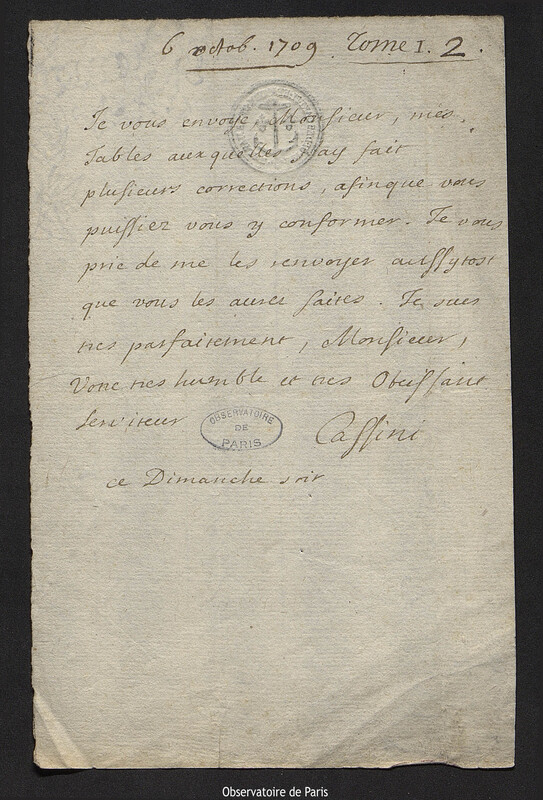 6 octob. 1709 Tome I. 2.
Je vous envoye Monsieur, mes
Tables auxquelles j'ay fait
plusieurs corrections, afinque vous
puissiez vous y conformer. Je vous
prie de me les renvoyer aussytost
que vous les aurez faites. Je suis
tres parfaitement, Monsieur,
Votre tres humble et tres Obeissant
Serviteur
OBSERVATOIRE
DE
PARIS
Cassini
ce Dimanche soir
Observatoire de Paris